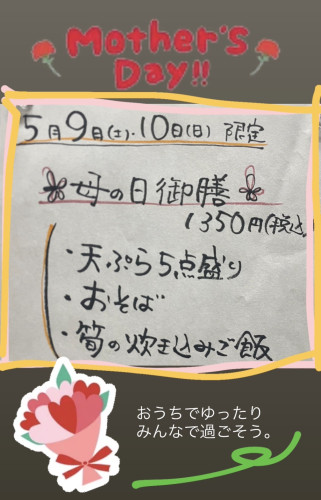 Mother's
Day!!
5月9日(土)・10日(日) 限定
母の日御膳
1350円(税込)
・天ぷら5点盛り
・おそば
・筍の炊き込みご飯
おうちでゆったり
みんなで過ごそう。